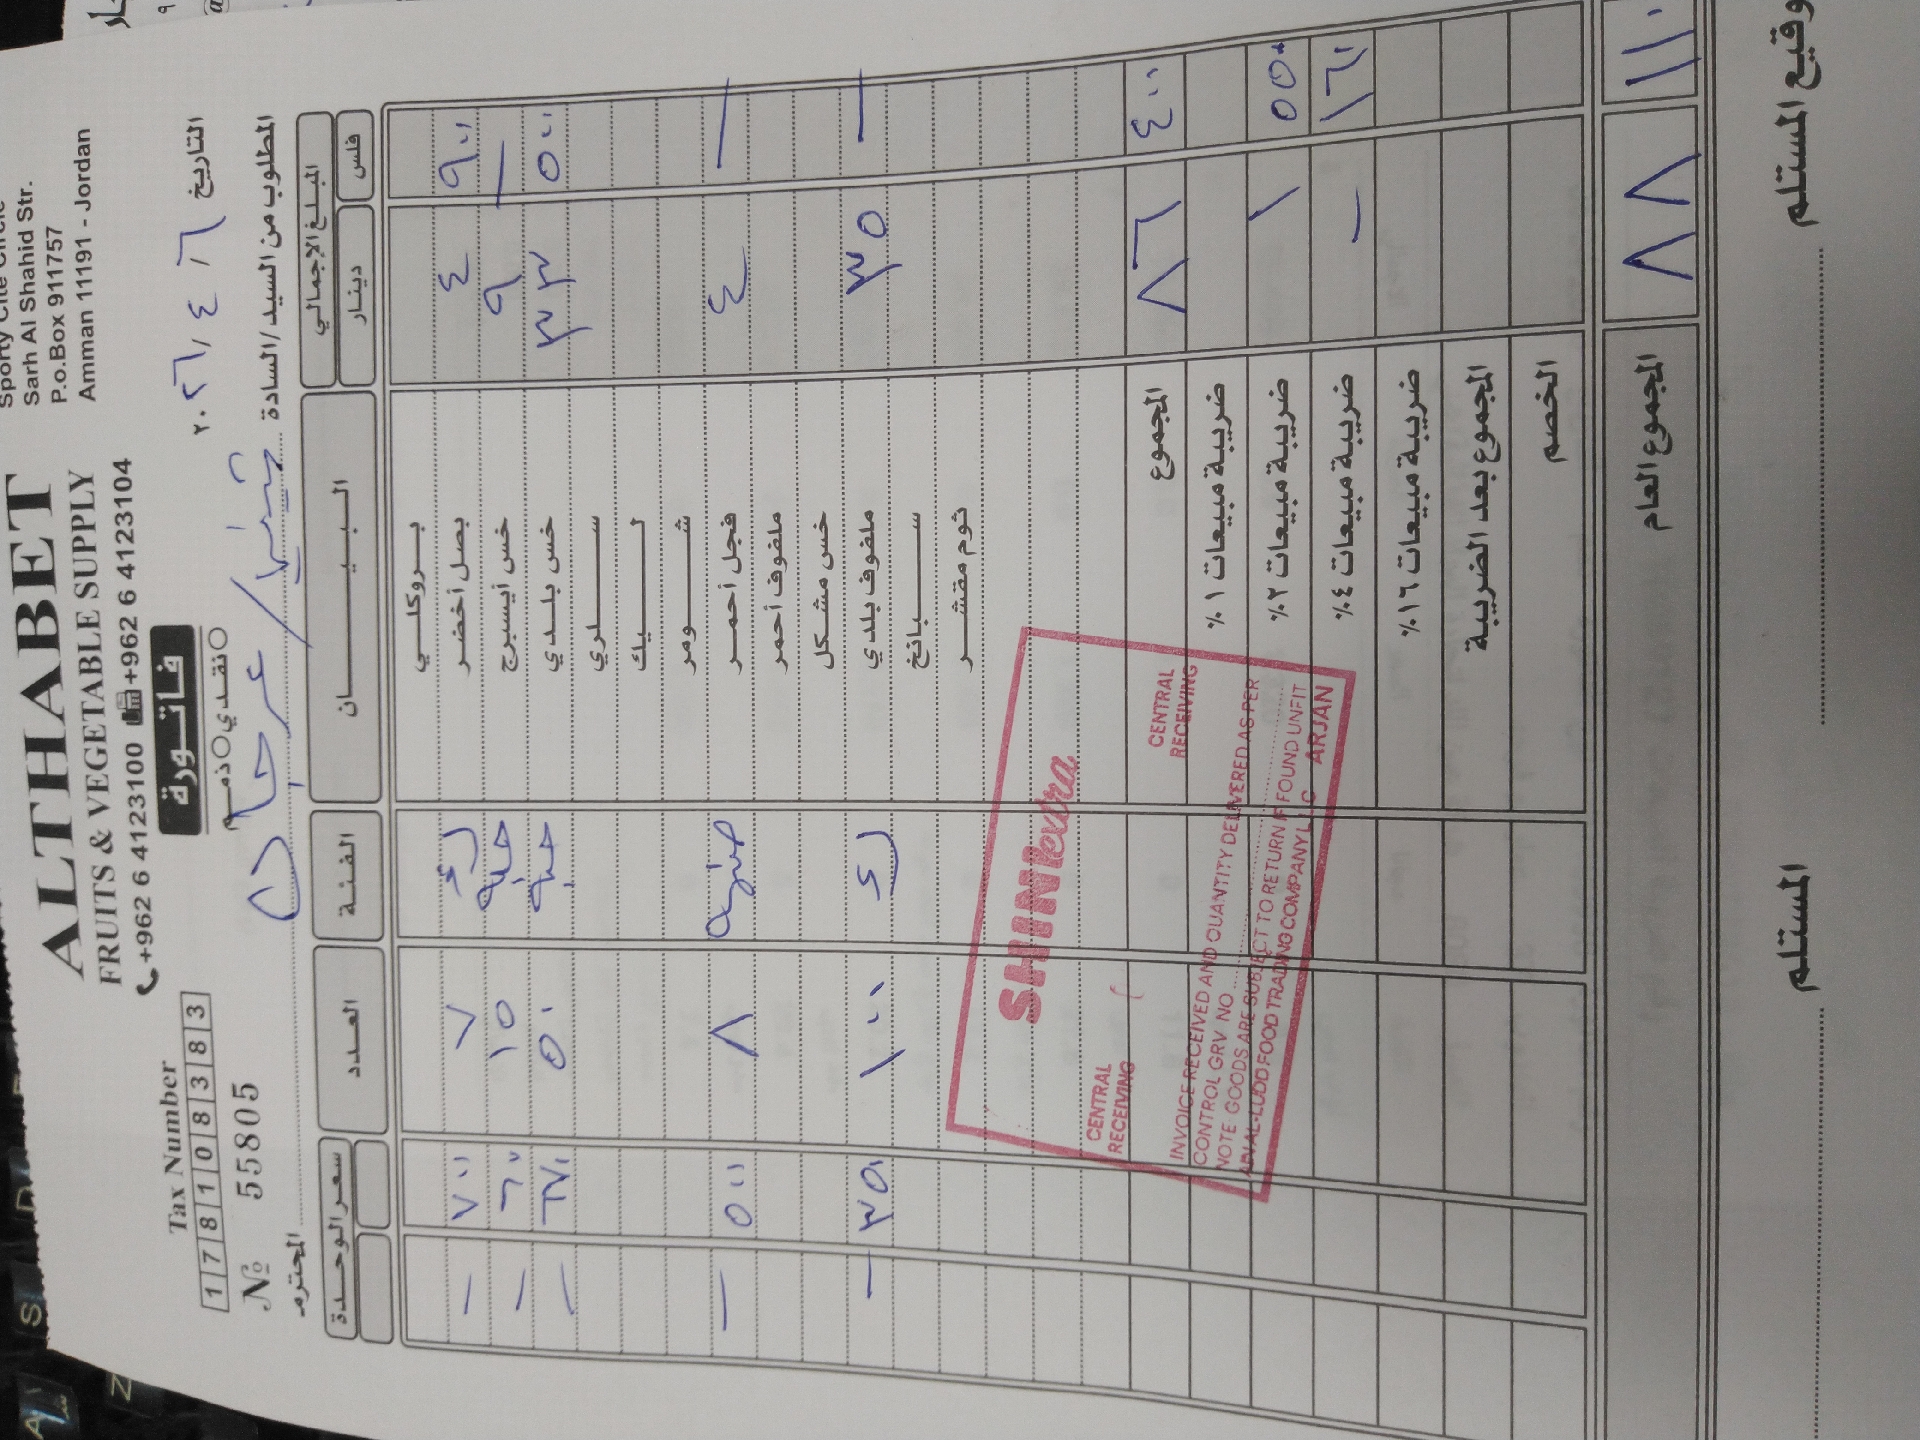 Sporty Cite Circle
Sarh Al Shahid Str.
P.o.Box 911757
Amman 11191 - Jordan
ALTHABET
FRUITS & VEGETABLE SUPPLY
+962 6 4123100 +962 6 4123104
فاتورة
نقدي ذمم
Tax Number
178108383
№ 55805
التاريخ ٢٦ / ٤ / ٢٠٢٦
المطلوب من السيد/السادة المحترم
المبلغ الإجمالي البيـــان الفئة العدد سعر الوحدة
دينار فلس
بروكلي
بصل أخضر ٤ ٩٠٠ ٧ — ٧٠٠
خس أيسبرج ٩ — ١٥ — ٦٠٠
خس بلدي ٣٣ ٥٠٠ ٥٠ — ٦٧٠
سلري
ليك
شومر
فجل أحمر ٤ — ٨ — ٥٠٠
ملفوف أحمر
خس مشكل
ملفوف بلدي ٣٥ — ١٠٠ — ٣٥٠
سبانخ
ثوم مقشر
المجموع ٨٦ ٤٠٠
ضريبة مبيعات ١%
ضريبة مبيعات ٢% ١ ٥٥٠
ضريبة مبيعات ٤% — ١٦٠
ضريبة مبيعات ١٦%
المجموع بعد الضريبة
الخصم
المجموع العام ٨٨ ١١٠
SHINIextra
CENTRAL RECEIVING
CENTRAL RECEIVING
INVOICE RECEIVED AND QUANTITY DELIVERED AS PER
CONTROL GRV NO
NOTE GOODS ARE SUBJECT TO RETURN IF FOUND UNFIT
FOOD TRADING COMPANY ARJAN
توقيع المستلم
المستلم